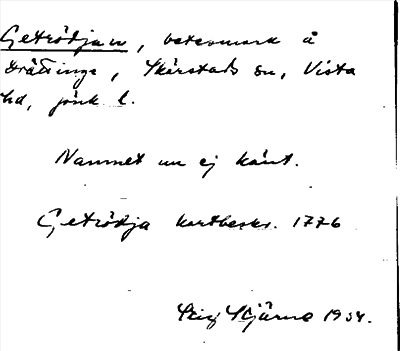 Getrödjan, betesmark å
Drättinge, Skärstads sn, Vista
hd, Jönk l.
Namnet nu ej känt.
Getrödja kartbeskr. 1776
Stig Stjärne 1934.